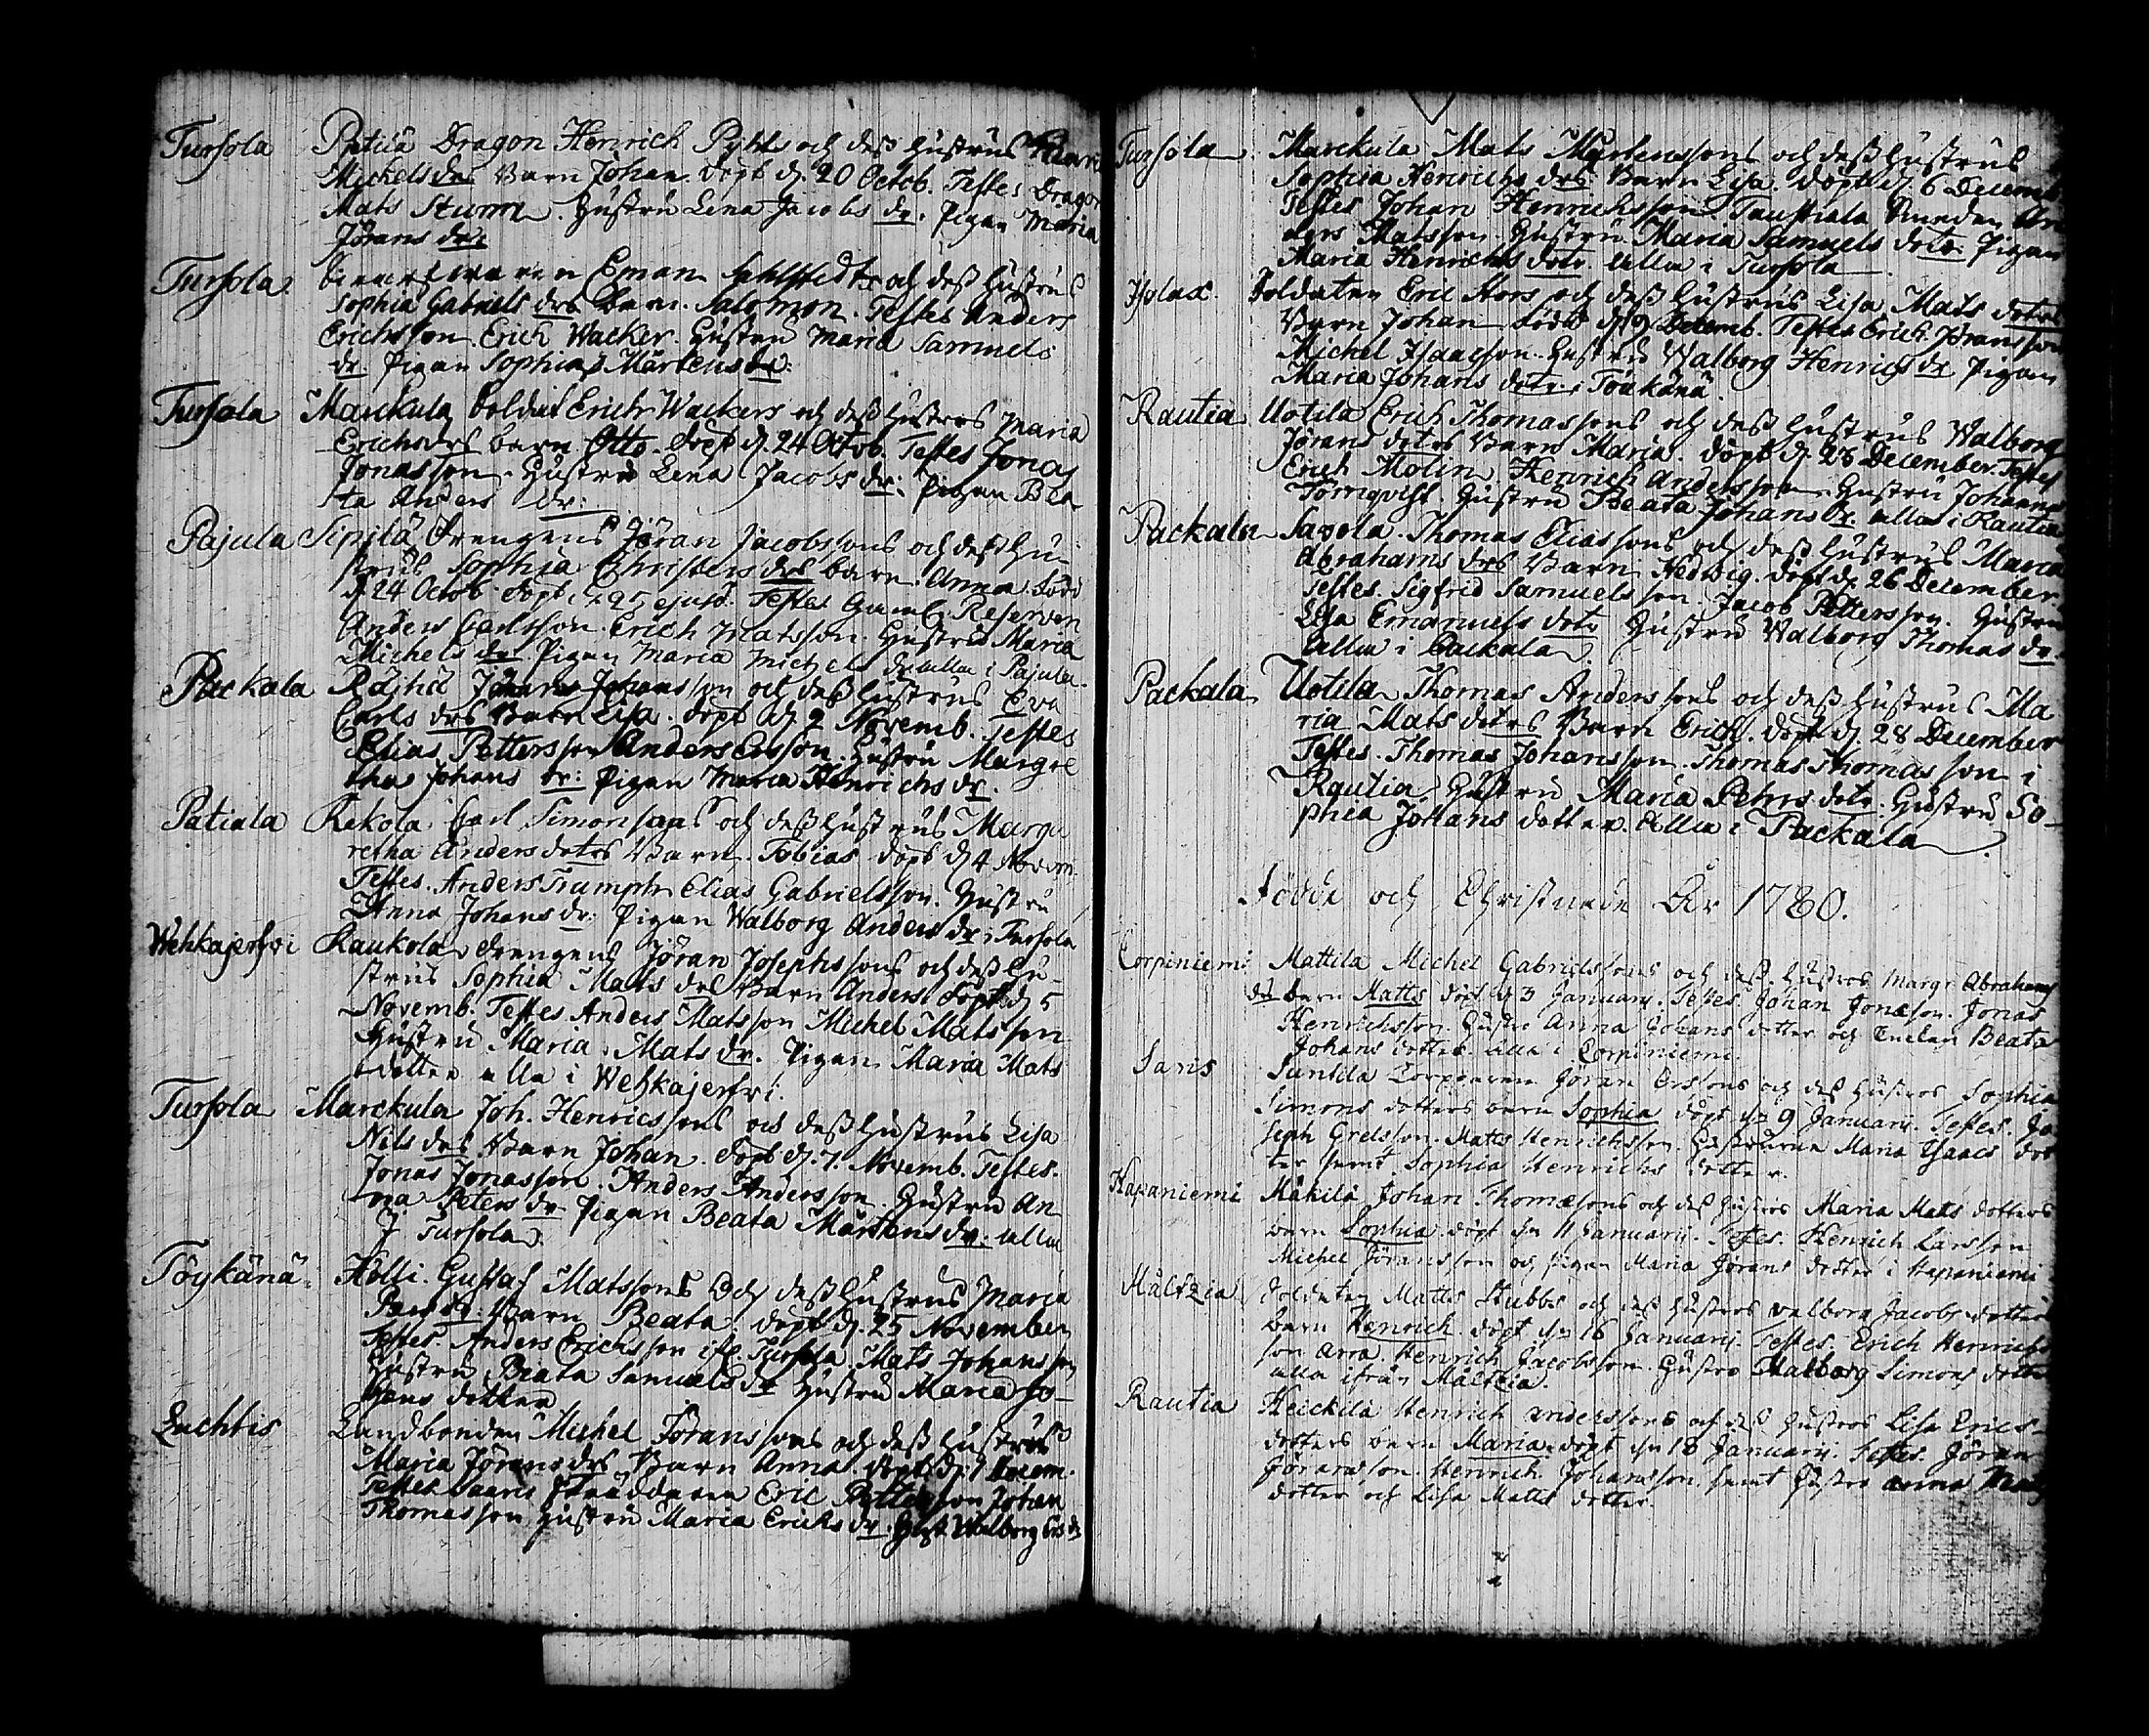 Tursola Dragon Henrich Pyhls och dess hustrus Maria
Michelsdrs Barn Johan. Döpt d. 20 Octob. Testes Dragon
Mats Sturm. Hustru Lena Jacobs dr. Pigan Maria
Jörans dr:
Tursola Eman och dess hustrus
Sophia Gabriels drs Barn. Salomon. Testes Anders
Erichsson. Erich Wacker. Hustru Maria Samuels
dr. Pigan Sophia Mårtens dr:
Tursola Marckula Soldat Erich Wackers och dess hustros Maria
Erichsdrs barn Otto. döpt d. 24 Octob. Testes Jonas
Jonasson. Hustru Lena Jacobs dr: Pigan Bea-
ta Anders dr:
Pajula Sipilä Drengens Jöran Jacobssons och dess hu-
strus Sophia Christers drs barn. Anna. född
d. 24 Octob. döpt. d. 25 ejusd. Testes Gaml. Reserven
Anders Carlsson. Erich Matsson. Hustru Maria
Michels dr. Pigan Maria Michels dr alla i Pajula.
Packala Johan Johansson och dess hustrus Eva
Carls drs Barn Lisa. döpt d. 2 Novemb. Testes
Elias Pettersson Anders Ersson. Hustru Margre
tha Johans dr: Pigan Maria Henrichs dr.
Patiala Rekola. Carl Simonsons och dess hustrus Marga
retha Anders dotrs Barn. Tobias döpt d. 4 Novem.
Testes. Anders Trumph Elias Gabrielsson. Hustru
Anna Johans dr: Pigan Walborg Anders dr i Tursola
Wehkajerfvi Raukola drengens Jöran Josephssons och dess hu-
strus Sophia Mats drs Barn Anders döpt d. 5
Novemb. Testes Anders Matsson Michel Matsson
Hustru Maria Mats dr. Pigan Maria Mats
dotter alla i Wehkajerfvi.
Tursola Marckula Joh. Henricssons och dess hustrus Lisa
Nils drs Barn Johan. döpt d. 7. Novemb. Testes.
Jonas Jonasson. Anders Andersson. Hustru An-
na Peters dr Pigan Beata Mårtens dr: alla
I Tursola
Töykänä Hölli. Gustaf Matssons Och dess hustrus Maria
Barn Beata. döpt d. 25 November
Testes. Anders Erichsson Tursola. Mats Johansson
Hustru Beata Samuels dr Hustru Maria Jo-
hans dotter
Luchtis Landbonden Michel Jöranssons och dess hustrus
Maria Jörans drs Barn Anna döpt d. 1 Decem.
Testes. Saaris Eric Pettersson Johan
Thomasson Hustru Maria Erichs dr. Hust. Walborg Ers dr
Tursola Marckula Mats Mårtenssons och dess hustrus
Sophia Henrichs drs Barn Lisa. döpt d. 6 Decemb.
Testes Johan Henrichsson. Smeden An
ders Matsson. Hustru Maria Samuels dotr. Pigan
Maria Henrichs dotr. alla i Tursola
Soldaten Eric och dess hustrus Lisa Mats dotrs
Barn Johan född d. 9 Decemb. Testes Erich Jöransson
Michel Isaacsson. Hustru Walborg Henrics dr Pigan
Maria Johans dotr. i Töykänä.
Rautia Uotila Erich Thomassons och dess hustrus Walborg
Jörans dotrs Barn Maria. döpt d. 28 December. Testes
Erich Molin. Henrich Andersson. Hustru Johanna
Törnqvist. Hustru Beata Johans dr. alla i Rautia
Packala Savola. Thomas Eliassons och dess hustrus Maria
Abrahams drs Barn Hedwig. döpt d. 26 December.
Testes. Sigfrid Samuelsson. Jacob Pettersson. Hustru
Lisa Emanuels dotr Hustru Valborg Thomas dr.
alla i Packala
Packala Uotila Thomas Anderssons och dess hustrus Ma
ria Mats dotrs Barn Erich. döpt d. 28 December
Testes. Thomas Johansson. Thomas Thomasson i
Rautia Hustru Maria Pehrs dotr. Hustru So-
phia Johans dotter. alla i Packala
Födde och Christnade År 1780.
Corpiniemi Mattila Michel Gabrielssons och dess hustros Margr. Abrahams
drs barn Matts döpt d. 3 Januarii. Testes. Johan Jonæson. Jonas
Henrichsson. Hustro Anna Johans dotter och Beata
Johans dotter. alla i Corpiniemi.
Saris Suntila Jöran Erssons och dess hustros Sophia
Simons dotters barn Sophia döpt d. 9 Januarii. Testes. Jo
seph Grelsson. Matts Henrichsson. Hustrurne Maria Isaacs dot
ter samt Sophia Henrichs dotter.
Hapaniemi Mäkilä Johan Thomæsons och dess hustros Maria Matts dotters
barn Sophia. döpt d. 11 Januarii. Testes. Henrich Larsson
Michel Jöransson och pigan Maria Jörans dotter i Hapaniemi
Maltzia Soldaten Matts Stubbs och dess hustros valborg Jacobs dotters
barn Henrich döpt d. 16 Januarii. Testes. Erich Henrichs
son Henrich Jacobsson. Hustro Walborg Simons dotter
alla ifrån Maltzia.
Rautia Heickilä Henrich anderssons och dess hustros Lisa Erics-
dotters barn Maria. döpt d. 18 Januarii. Testes. Jöran
Jöransson. Henrich Johansson, samt hustro anna
dotter och Lisa Matts dotter.